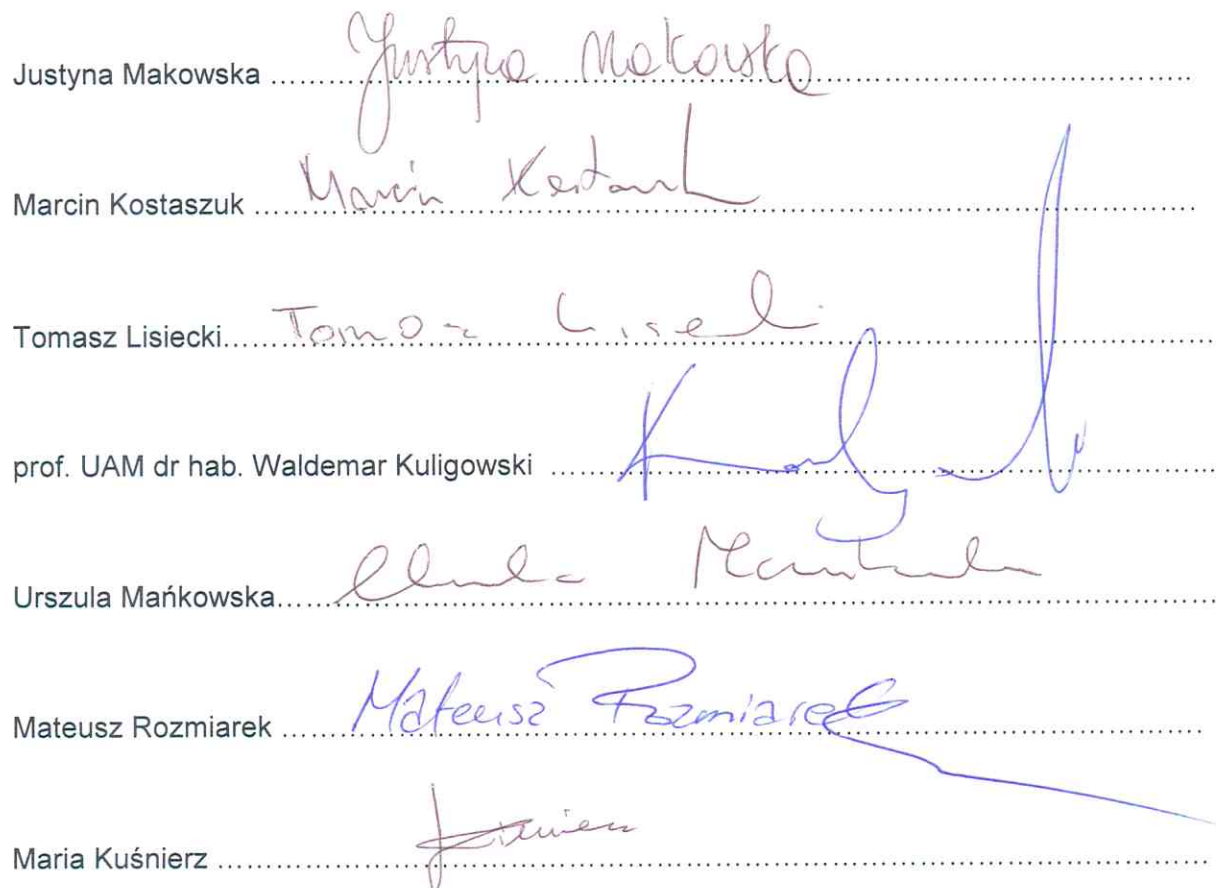 Justyna Makowska ........ Justyna Makowska
Marcin Kostaszuk ........ Marcin Kostaszuk
Tomasz Lisiecki........ Tomasz Lisiecki
prof. UAM dr hab. Waldemar Kuligowski ........
Urszula Mańkowska........
Mateusz Rozmiarek ........ Mateusz Rozmiarek
Maria Kuśnierz ........